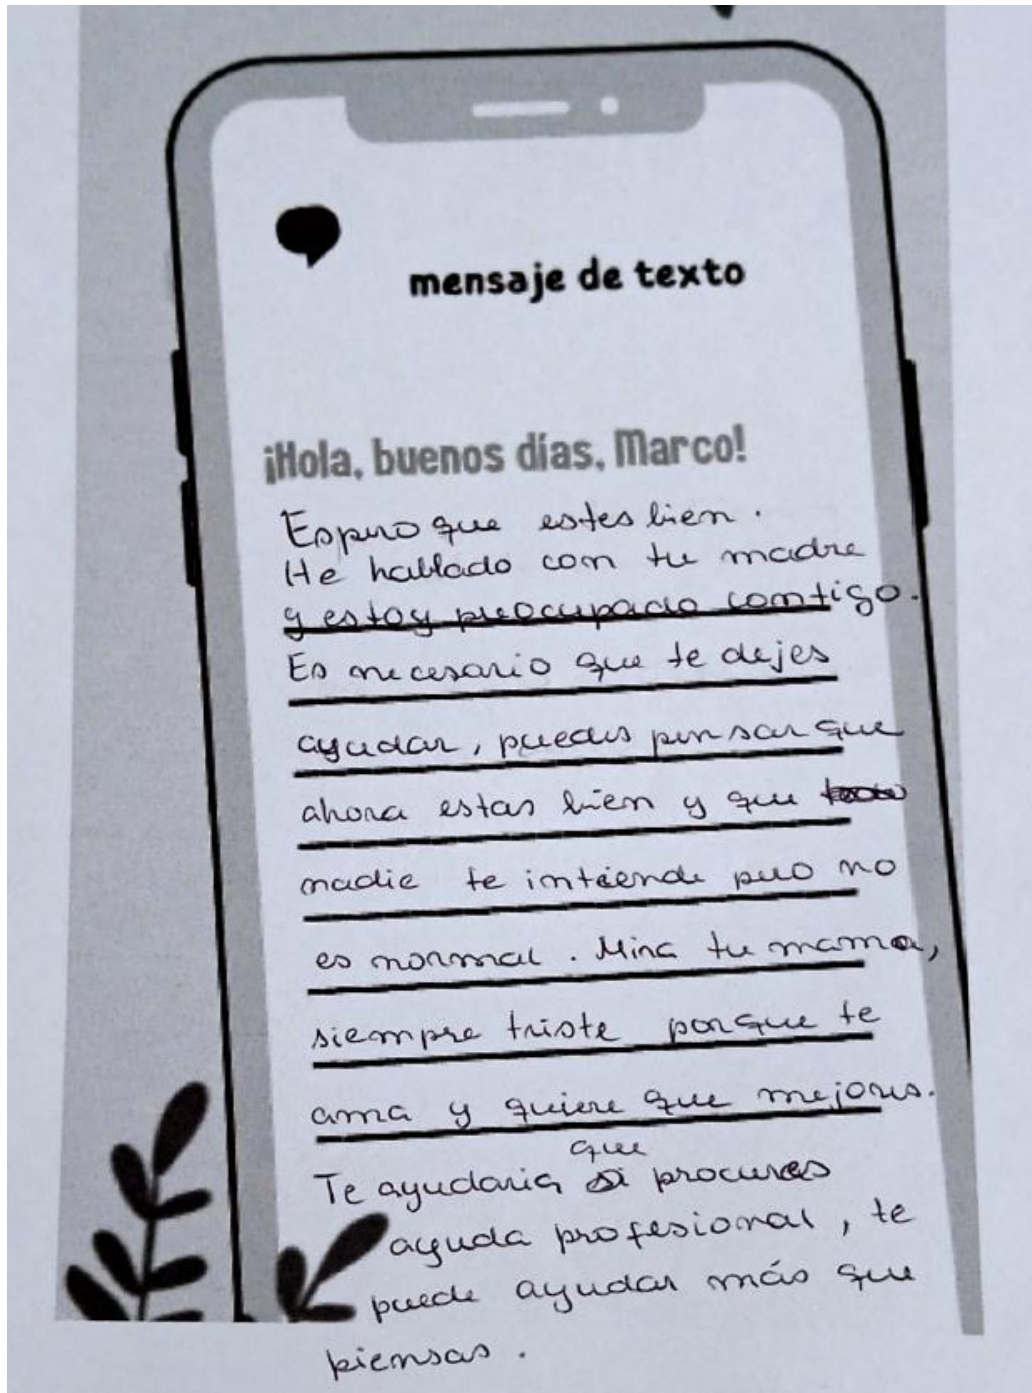 mensaje de texto
¡Hola, buenos días, Marco!
Espero que estes bien.
He hablado con tu madre
y estoy preocupado contigo.
Es necesario que te dejes
ayudar, puedes pensar que
ahora estas bien y que
nadie te intiende pero no
es normal. Mira tu mama,
siempre triste porque te
ama y quiere que mejores.
que
Te ayudaria si procures
ayuda profesional, te
puede ayudar más que
piensas.